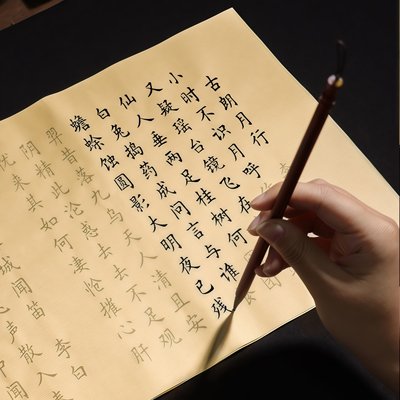 古朗月行
小时不识月呼作
又疑瑶台镜飞在
仙人垂两足桂树何
白兔捣药成问言与谁
蟾蜍蚀圆影大明夜已残
羿昔落九乌天人清且安
阴精此沦惑去去不足观
忧来其如何凄怆摧心肝
城闻笛 李白
声散入
中闻